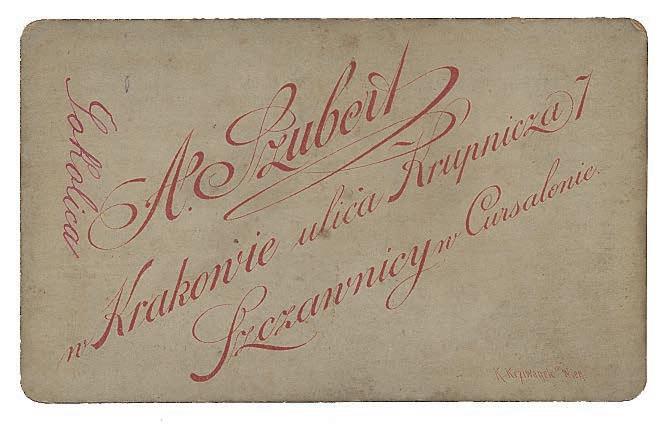 Sokolica
A. Szubert
w Krakowie ulica Krupnicza 7
Szczawnicy w Cursalonie.
K. Krziwanek Wien.